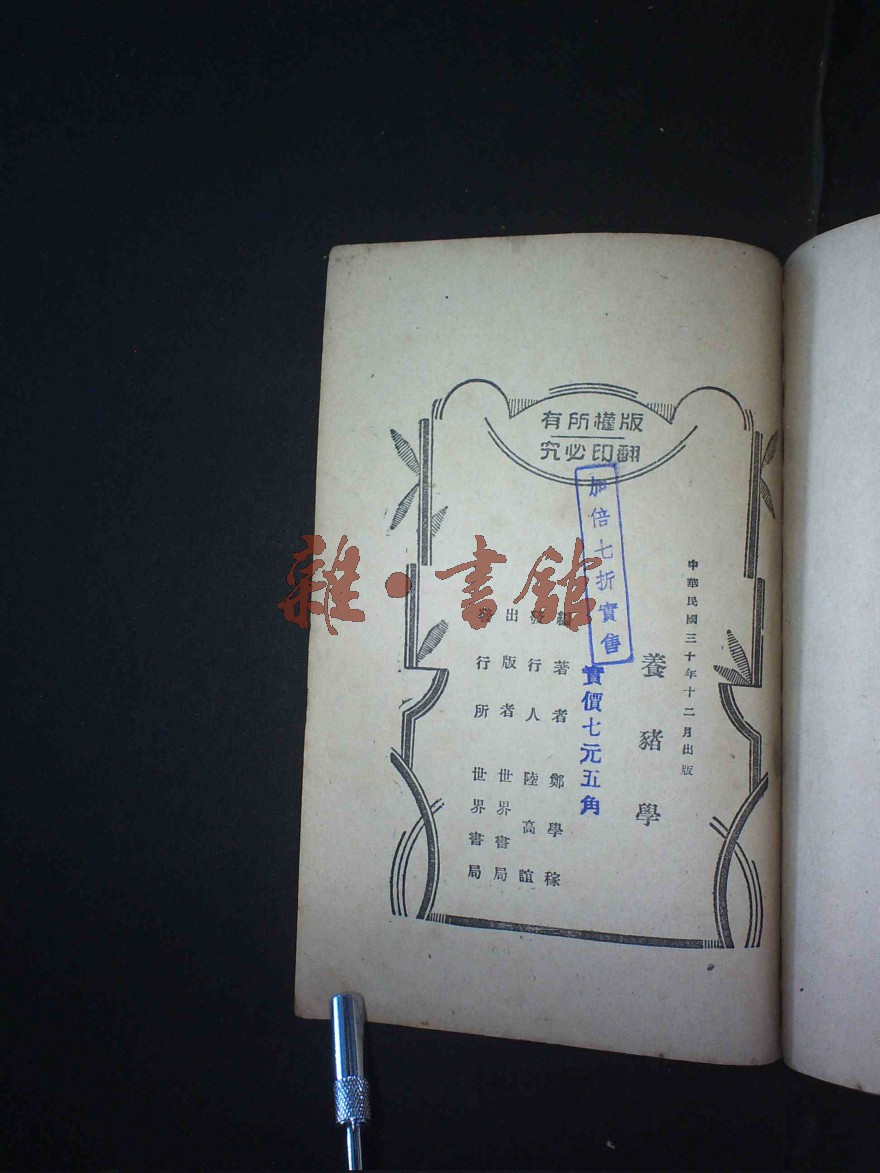 版權所有
翻印必究
中華民國三十年十二月出版
養豬學
加倍七折實售
實價七元五角
編著者 鄭學稼
發行人 陸高誼
出版者 世界書局
發行所 世界書局
雜·書館